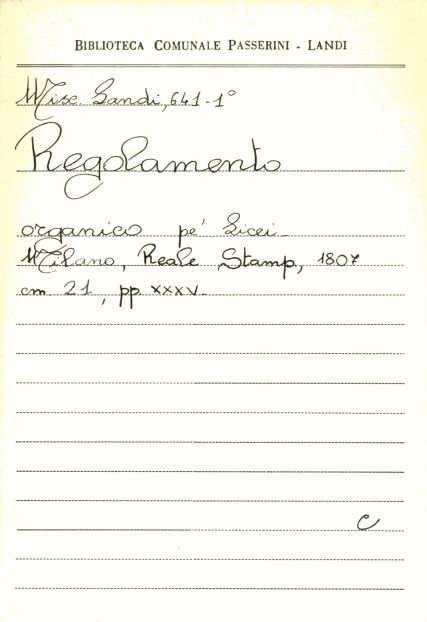 BIBLIOTECA COMUNALE PASSERINI - LANDI
Misc. Landi, 641-1°
Regolamento
organico pe' Licei.
Milano, Reale Stamp, 1807
cm 21, pp. XXXV.
C